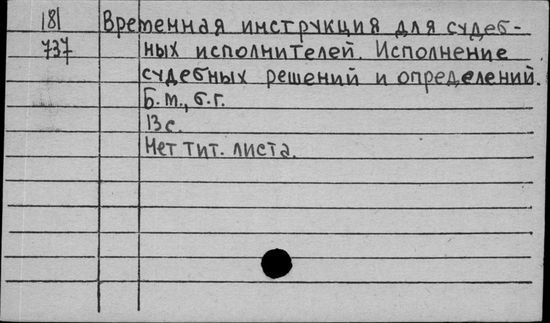 181 Временная инструкция для судеб-
737 ных исполнителей. Исполнение
судебных решений и определений.
Б.м., б.г.
13 с.
Нет тит. листа.